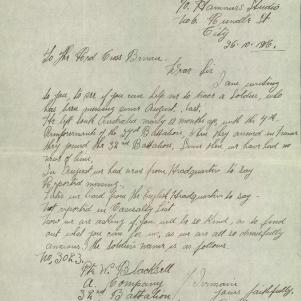 C/o Hammers Studio
No 6. Rundle St
City
26-10-1916.
To The Red Cross Bureau
Dear Sir
I am writing
to you, to see if you can help me to trace a Soldier, who
has been missing since August, last.
He left South Australia nearly 12 months ago, with the 7th
Reinforcements of the 27th Battalion, when they arrived in
they joined the 32nd Battalion, Since then we have had no
word of him,
In August we had word from Headquarters to say
Reported missing.
Later we heard from the English Headquarters to say
Not reported in Casualty List
now we are asking if you will be so kind, as to find
out what you can for us, as we are all so dreadfully
anxious. The soldiers name is as follows.
No, 3023
Pte W. Blackwell
A. Company
32nd Battalion
I remain
yours faithfully